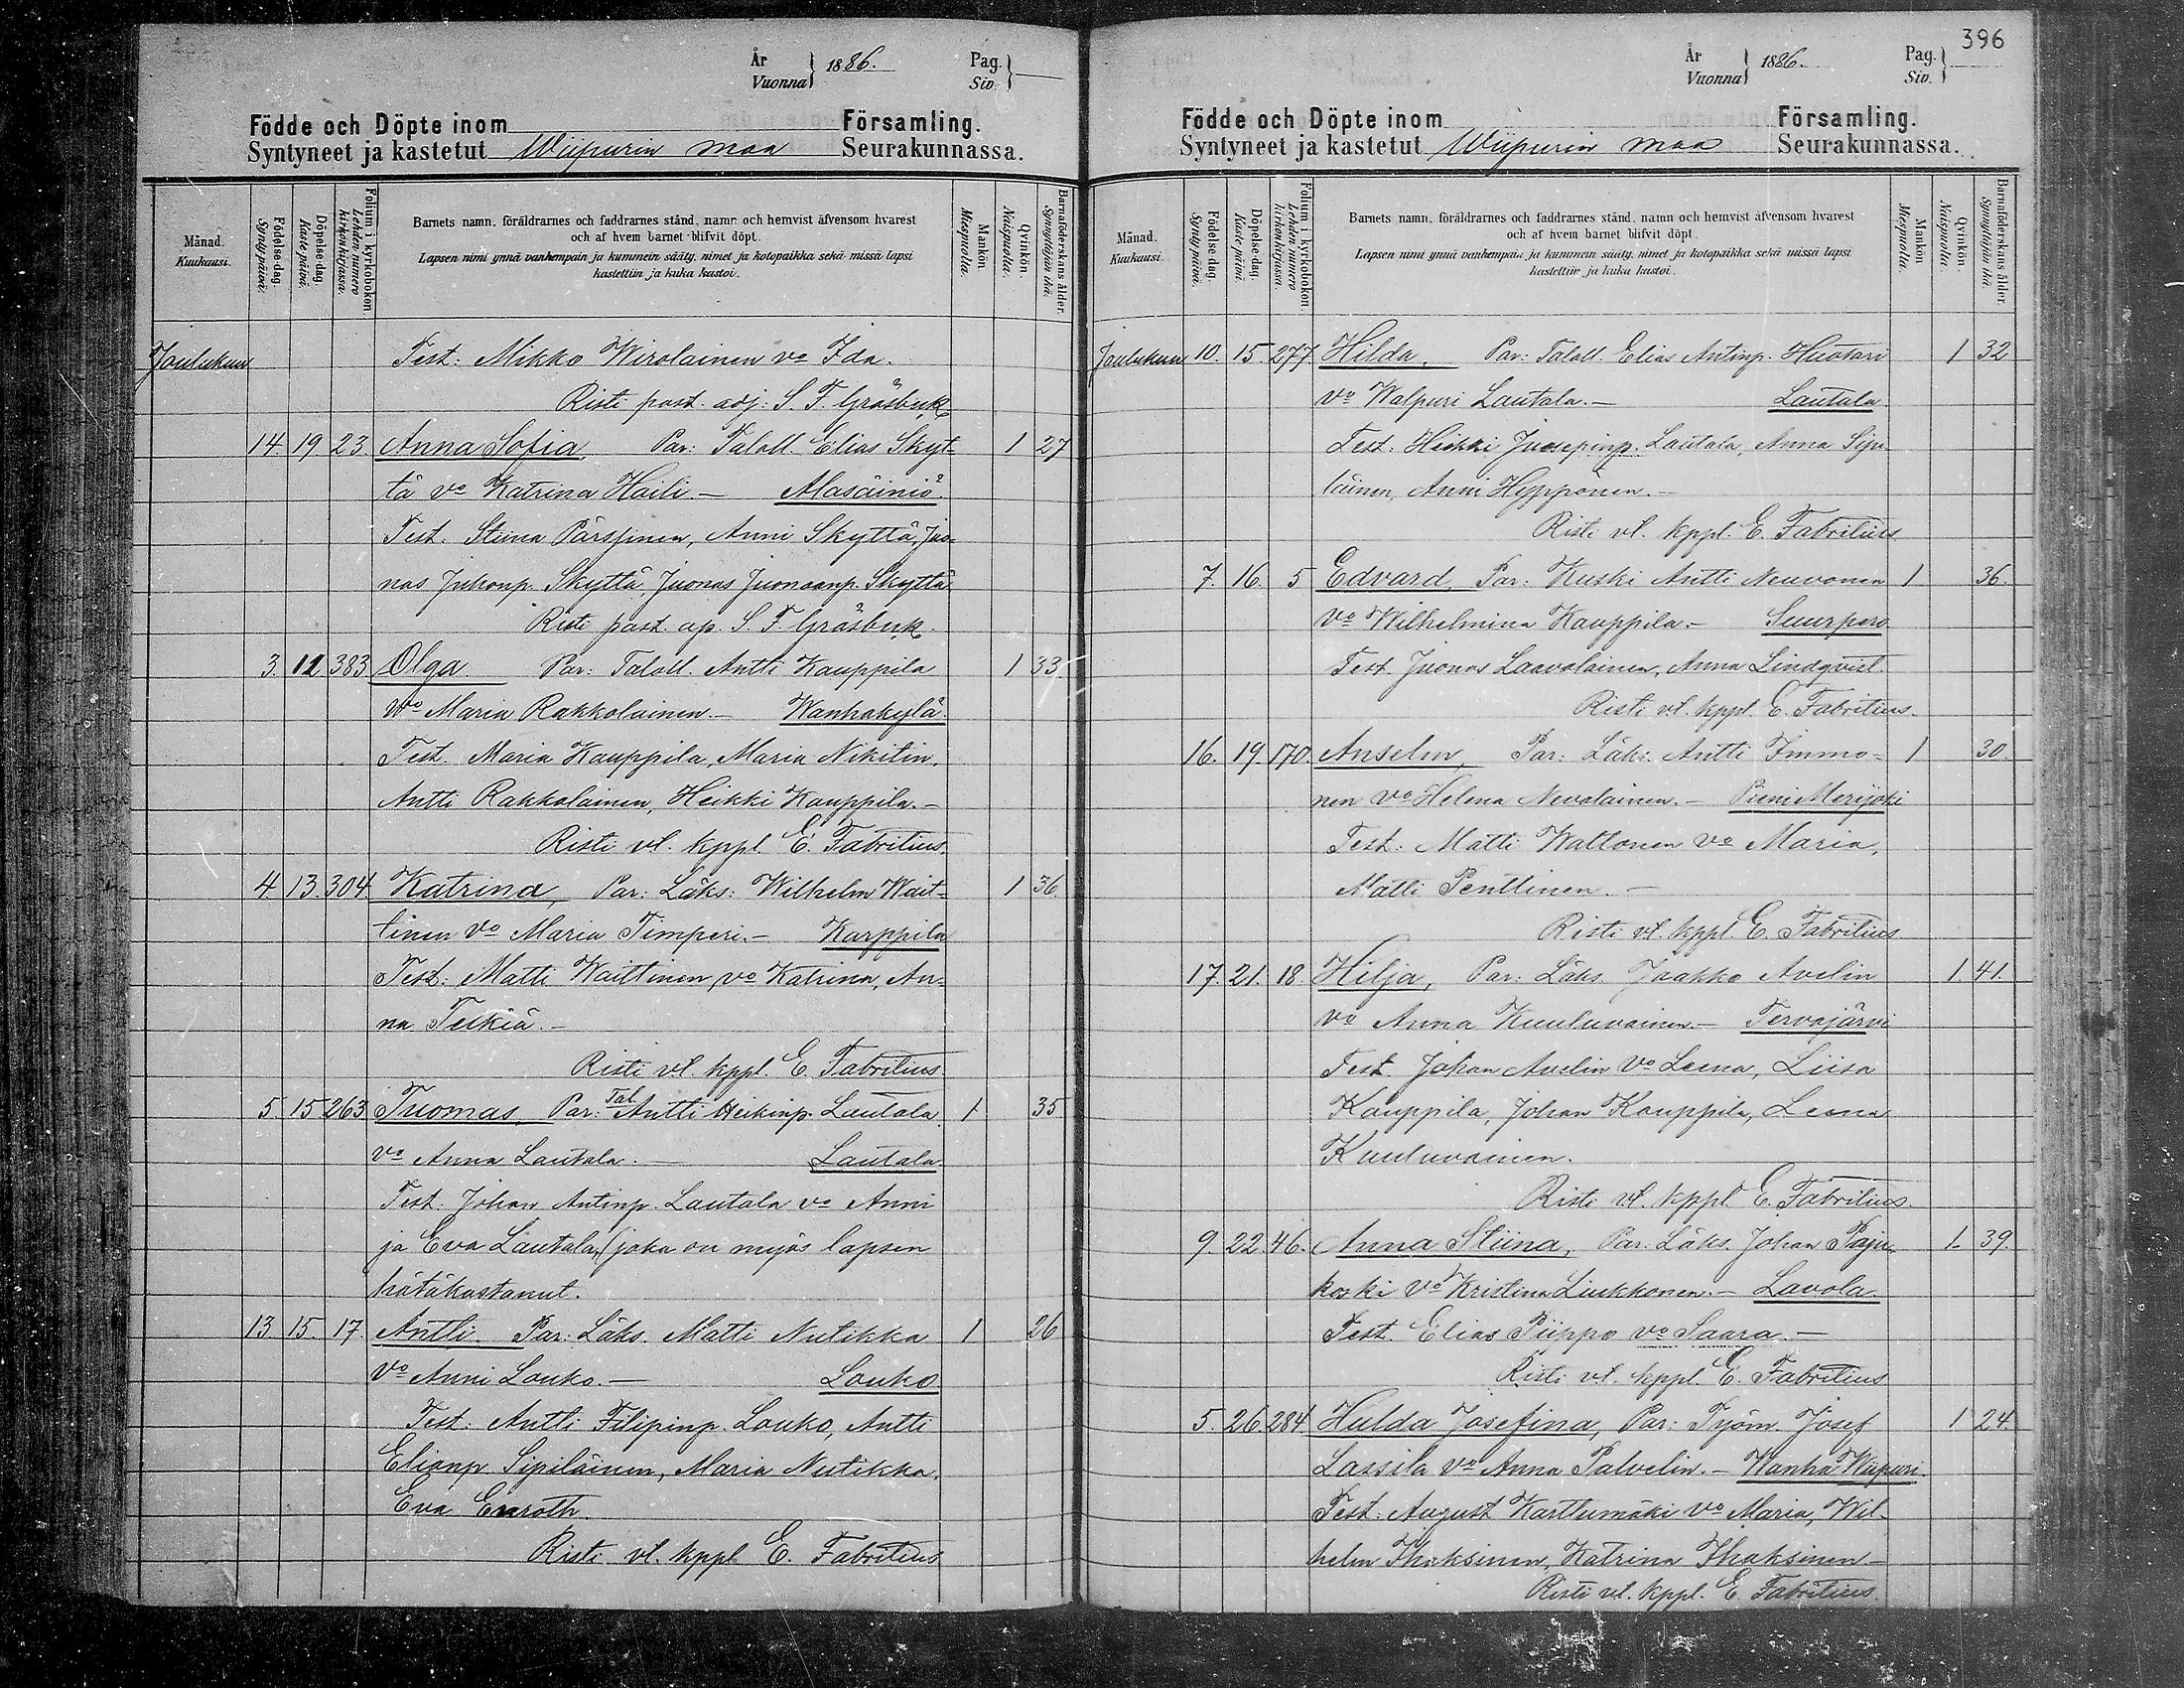 År
Vuonna } 1886.
Pag.
Siv. }
Födde och Döpte inom Församling.
Syntyneet ja kastetut Wiipurin maa Seurakunnassa.
Månad.
Kuukausi.
Födelse-dag.
Syntypäivä.
Döpelse-dag.
Kastepäivä.
Folium i kyrkoboken.
Lehden numero
kirkonkirjassa.
Barnets namn, föräldrarnes och faddrarnes stånd, namn och hemvist äfvensom hvarest
och af hvem barnet blifvit döpt.
Lapsen nimi ynnä vanhempain ja kummein sääty, nimet ja kotopaikka sekä missä lapsi
kastettiin ja kuka kastoi.
Mankön.
Miespuolia.
Qvinkön.
Naispuolia.
Barnaföderskans ålder.
Synnyttäjän ikä.
Joulukuu Test: Mikko Wirolainen vo Ida.
Risti past. adj: S. F. Gråsbäck
14. 19 23. Anna Sofia, Par: Taloll. Elias Skyt= 1 27
tä vo Katrina Haili — Alasäiniö.
Test. Stiina Pärssinen, Anni Skyttä, Juo=
nas Juhonp. Skyttä, Juonas Juonaanp. Skyttä.
Risti past. ap. S. F. Gråsbäck.
3. 12 383 Olga Par: Taloll. Antti Kauppila 1 33.
vo Maria Rakkolainen. — Wanhakylä.
Test. Maria Kauppila, Maria Nikitin,
Antti Rakkolainen, Heikki Kauppila. —
Risti vl. kppl. E. Fabritius.
4. 13. 304. Katrina, Par: Läks: Wilhelm Wait= 1 36.
tinen vo Maria Timperi. — Karppila
Test: Matti Waittinen, vo Katrina, An=
na Telkiä. —
Risti vl. kppl. E. Fabritius.
5. 15 263 Tuomas, Par: Tal. Antti Heikinp. Lautala 1 35
vo Anna Lautala. — Lautala.
Test: Johan Antinp. Lautala vo Anni
ja Eva Lautala, (joka on myös lapsen
hätäkastanut.
13. 15. 17. Antti. Par: Läks. Matti Nutikka 1 26
vo Anni Louko. — Louko
Test: Antti Filipinp. Louko, Antti
Elianp. Sipiläinen, Maria Nutikka,
Eva Enroth.
Risti vl. kppl. E. Fabritius
396
År
Vuonna } 1886.
Pag.
Siv. }
Födde och Döpte inom Församling.
Syntyneet ja kastetut Wiipurin maa Seurakunnassa.
Månad.
Kuukausi.
Födelse-dag.
Syntypäivä.
Döpelse-dag.
Kastepäivä.
Folium i kyrkoboken.
Lehden numero
kirkonkirjassa.
Barnets namn, föräldrarnes och faddrarnes stånd, namn och hemvist äfvensom hvarest
och af hvem barnet blifvit döpt.
Lapsen nimi ynnä vanhempain ja kummein sääty, nimet ja kotopaikka sekä missä lapsi
kastettiin ja kuka kastoi.
Mankön.
Miespuolia.
Qvinkön.
Naispuolia.
Barnaföderskans ålder.
Synnyttäjän ikä.
Joulukuu 10. 15. 277 Hilda, Par: Taloll. Elias Antinp. Huotari 1 32
vo Walpuri Lautala. — Lautala
Test: Heikki Juosepinp. Lautala, Anna Sipi
läinen, Anni Hyppönen. —
Risti vl. kppl. E. Fabritius
7. 16. 5 Edvard, Par: Kuski Antti Neuvonen 1 36.
vo Wilhelmina Kauppila. — Suurpero
Test. Juonas Laavolainen, Anna Lindqvist.
Risti vl. kppl. E. Fabritius.
16. 19. 170. Anselm, Par: Läks. Antti Immo= 1 30.
nen vo Helena Nevalainen. — Pieni Merijoki
Test: Matti Waltonen vo Maria,
Matti Penttinen. —
Risti vl. kppl. E. Fabritius
17. 21. 18. Hilja, Par: Läks. Jaakko Avelin 1. 41.
vo Anna Kuuluvainen. — Tervajärvi
Test. Johan Avelin vo Leena, Liisa
Kauppila, Johan Kauppila, Leena
Kuuluvainen.
Risti vl. kppl. E. Fabritius.
9. 22. 46. Anna Stiina, Par. Läks. Johan Paju= 1. 39.
koski vo Kristina Liukkonen. — Lavola.
Test. Elias Piippo vo Saara. —
Risti vl. kppl. E. Fabritius
5. 26. 284. Hulda Josefina, Par: Työm. Josef 1 24.
Lassila vo Anna Palvelin. — Wanha Wiipuri.
Test: August Karttumäki vo Maria, Wil=
helm Ihaksinen, Katrina Ihaksinen —
Risti vl. kppl. E. Fabritius.